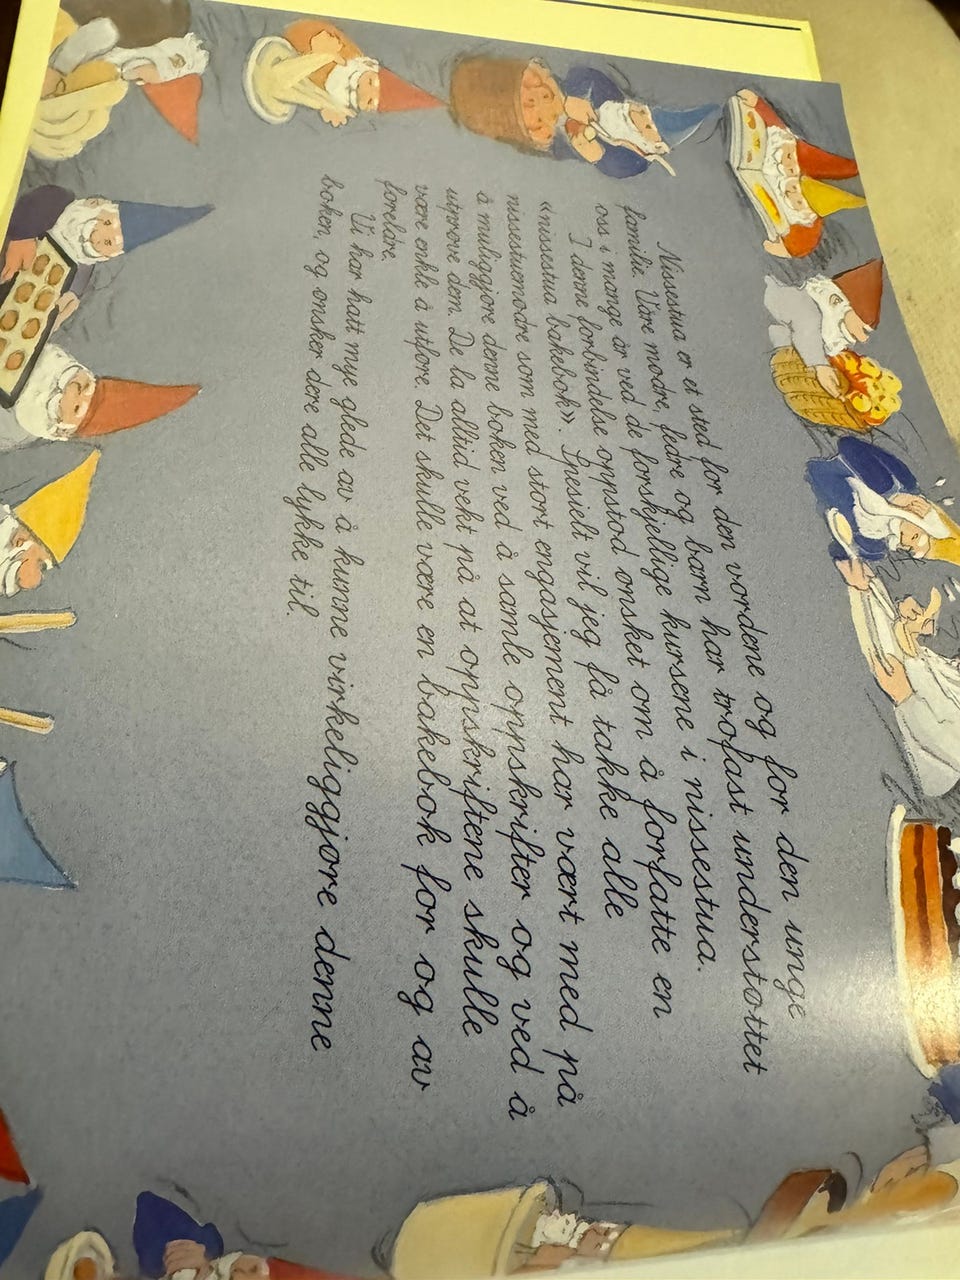 Nissestua er et sted for den vordene og for den unge
familie. Våre mødre, fedre og barn har trofast understøttet
oss i mange år ved de forskjellige kursene i nissestua.
I denne forbindelse oppstod ønsket om å forfatte en
«nissestua bakebok». Spesielt vil jeg få takke alle
nissestuemødre som med stort engasjement har vært med på
å muliggjøre denne boken ved å samle oppskrifter og ved å
utprøve dem. De la alltid vekt på at oppskriftene skulle
være enkle å utføre. Det skulle være en bakebok for og av
foreldre.
Vi har hatt mye glede av å kunne virkeliggjøre denne
boken, og ønsker dere alle lykke til.